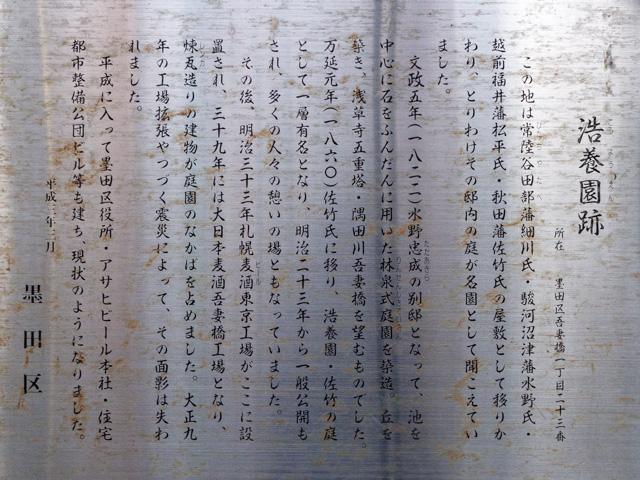 浩養園跡
所在　墨田区吾妻橋一丁目二十三番
この地は常陸谷田部藩細川氏・駿河沼津藩水野氏・
越前福井藩松平氏・秋田藩佐竹氏の屋敷として移りか
わり、とりわけその邸内の庭が名園として聞こえてい
ました。
文政五年（一八二二）水野忠成の別邸となって、池を
中心に石をふんだんに用いた林泉式庭園を築造。丘を
築き、浅草寺五重塔・隅田川吾妻橋を望むものでした。
万延元年（一八六〇）佐竹氏に移り、浩養園・佐竹の庭
として一層有名となり、明治二十三年から一般公開も
され、多くの人々の憩いの場ともなっていました。
その後、明治三十三年札幌麦酒東京工場がここに設
置され、三十九年には大日本麦酒吾妻橋工場となり、
煉瓦造りの建物が庭園のなかばを占めました。大正九
年の工場拡張やつづく震災によって、その面影は失わ
れました。
平成に入って墨田区役所・アサヒビール本社・住宅
都市整備公団ビル等も建ち、現状のようになりました。
平成三年三月
墨田区